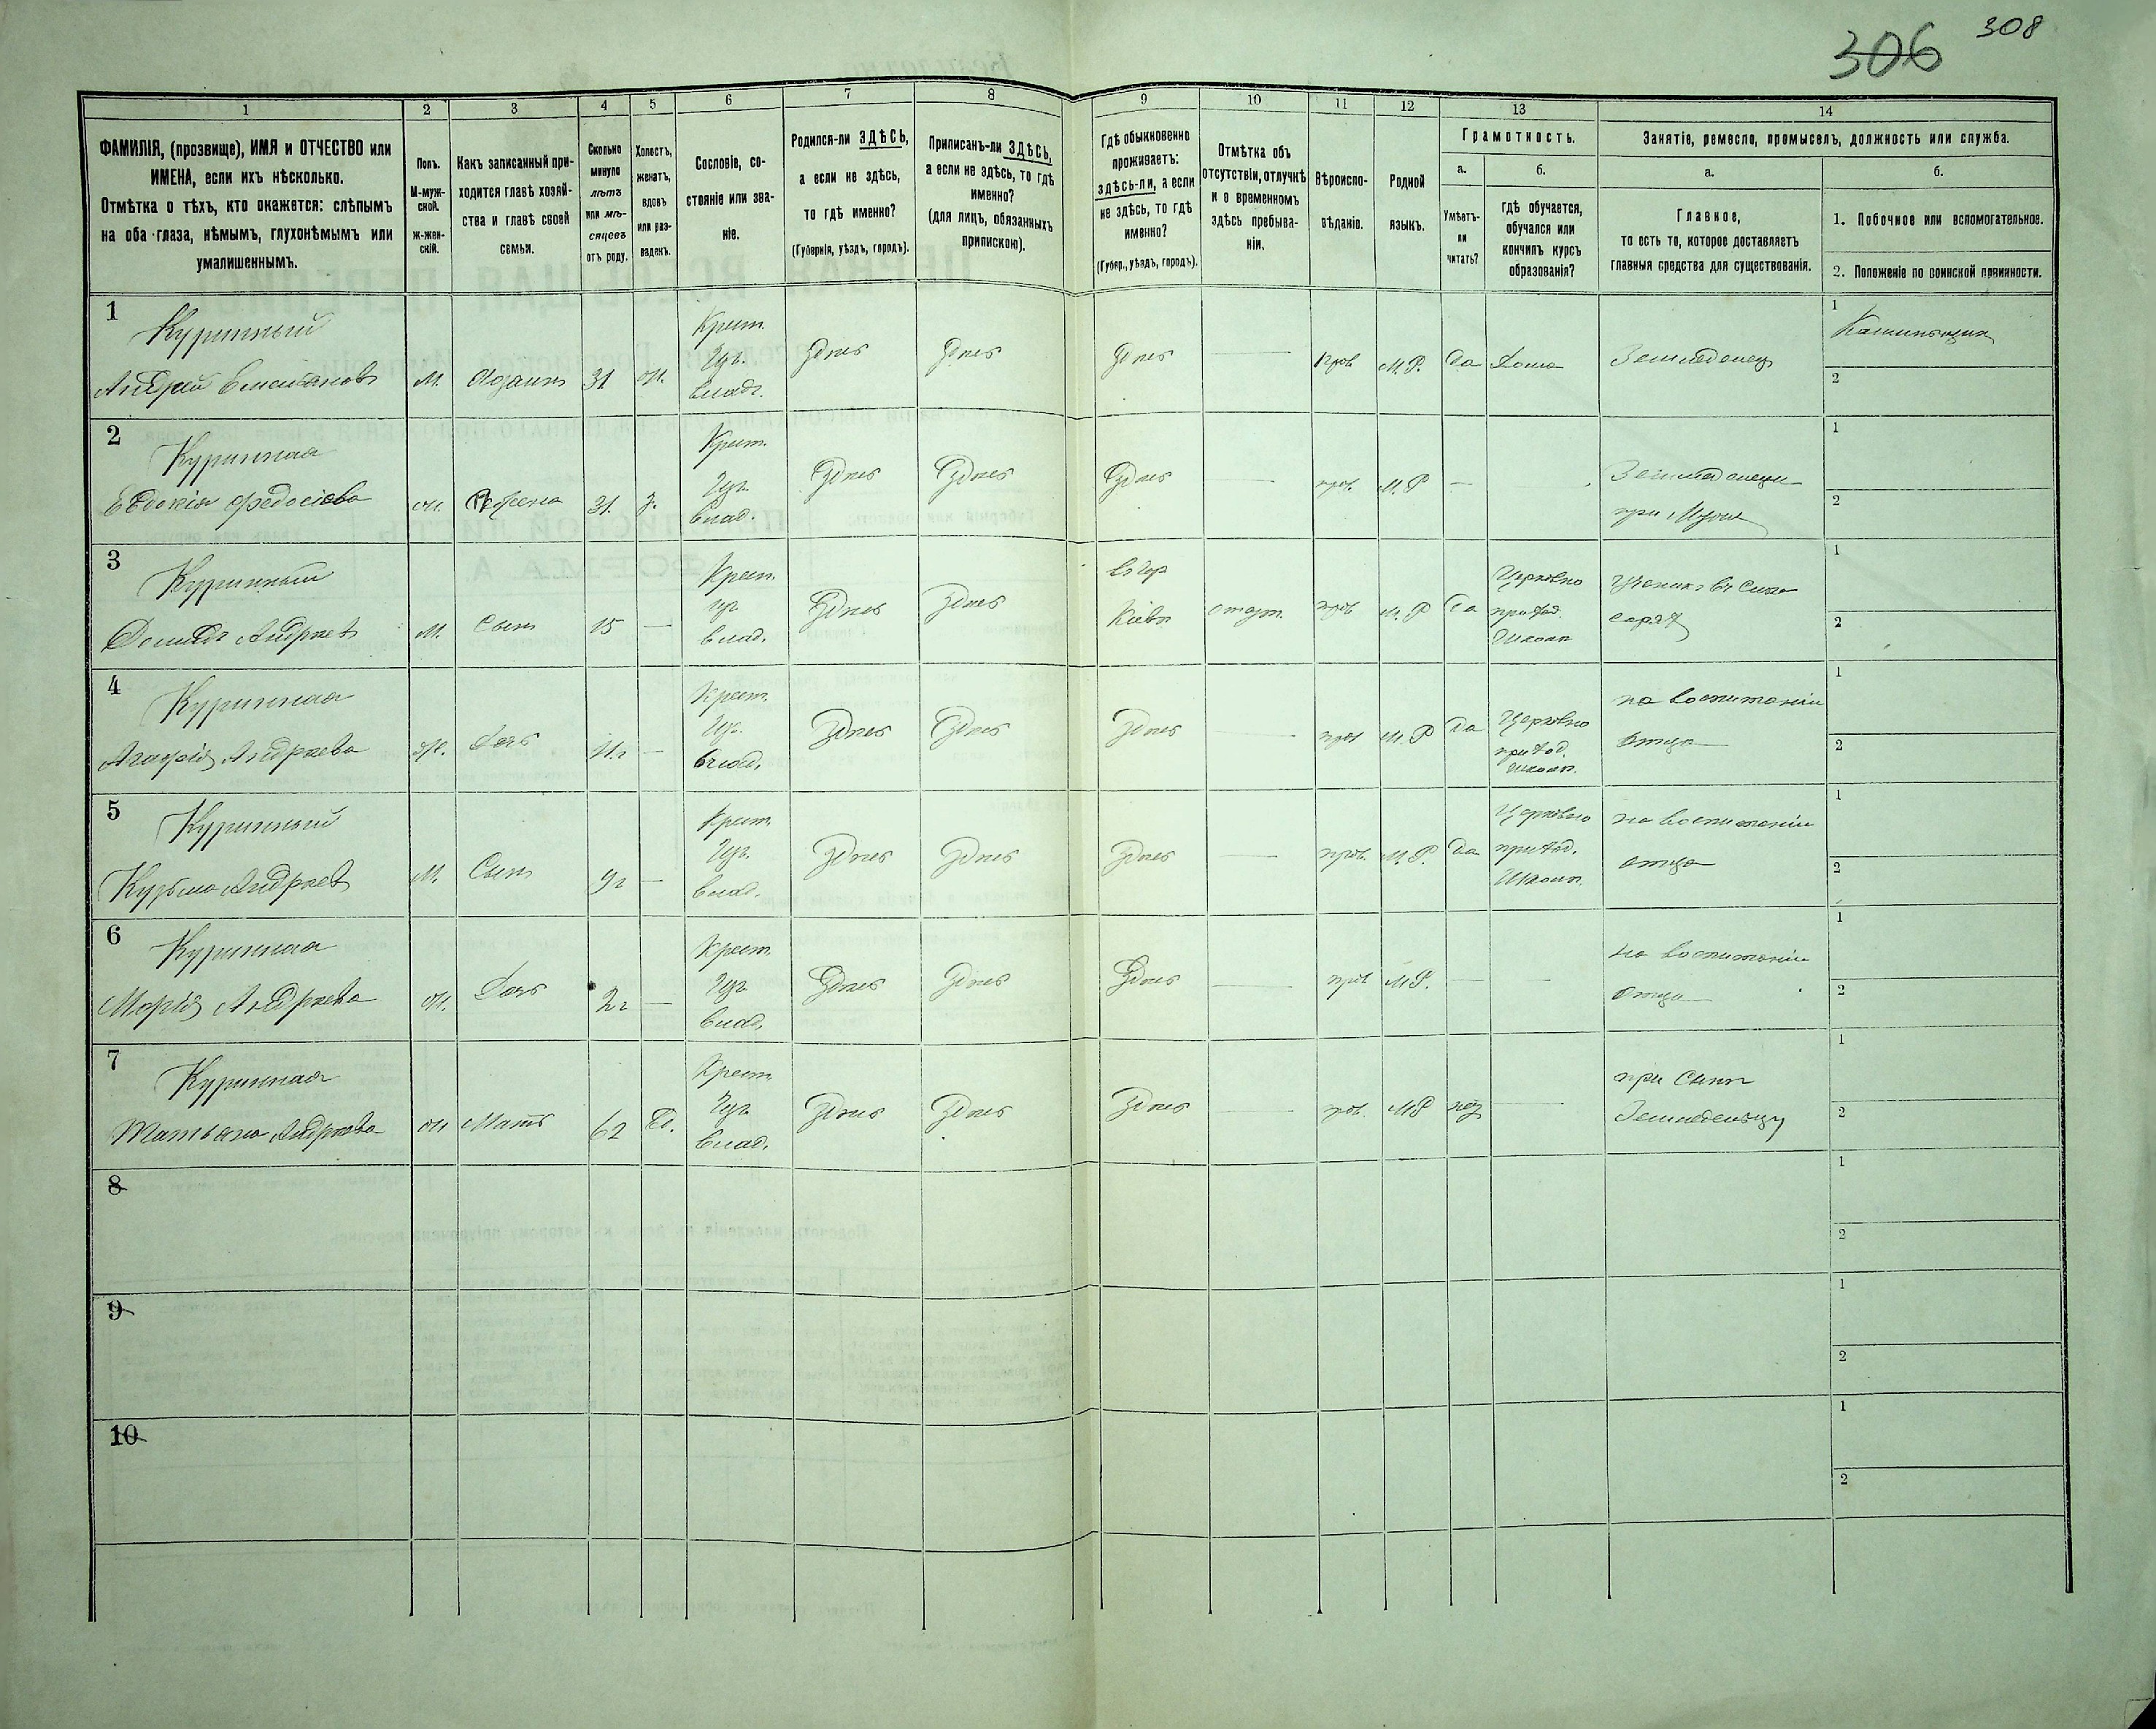 306 308
1 2 3 4 5 6 7 8 9 10 11 12 13 14
ФАМИЛІЯ, (прозвище), ИМЯ и ОТЧЕСТВО или
ИМЕНА, если ихъ нѣсколько.
Отмѣтка о тѣхъ, кто окажется: слѣпымъ
на оба глаза, нѣмымъ, глухонѣмымъ или
умалишеннымъ.
Полъ.
М-муж-
ской.
Ж-жен-
скій.
Какъ записанный при-
ходится главѣ хозяй-
ства и главѣ своей
семьи.
Сколько
минуло
лѣтъ
или мѣ-
сяцевъ
отъ роду.
Холостъ,
женатъ,
вдовъ
или раз-
веденъ.
Сословіе, со-
стояніе или зва-
ніе.
Родился-ли ЗДѢСЬ,
а если не здѣсь,
то гдѣ именно?
(Губернія, уѣздъ, городъ).
Приписанъ-ли ЗДѢСЬ,
а если не здѣсь, то гдѣ
именно?
(для лицъ, обязанныхъ
припискою).
Гдѣ обыкновенно
проживаетъ:
здѣсь-ли, а если
не здѣсь, то гдѣ
именно?
(Губер., уѣздъ, городъ).
Отмѣтка объ
отсутствіи, отлучкѣ
и о временномъ
здѣсь пребыва-
ніи.
Вѣроиспо-
вѣданіе.
Родной
языкъ.
Грамотность.
а.
Умѣетъ-
ли
читать?
б.
гдѣ обучается,
обучался или
кончилъ курсъ
образованія?
Занятіе, ремесло, промыселъ, должность или служба.
а.
Главное,
то есть то, которое доставляетъ
главныя средства для существованія.
б.
1. Побочное или вспомогательное.
2. Положеніе по воинской повинности.
1
Куринный
Андрей Емельяновъ
М. Хозяинъ 31 ж.
Крест.
влад.
Здесь Здесь Здесь — прав М.Р. да Дома Земледелец
1
2
2
Куринная
Евдокія Федосіева
ж. Жена 31. з.
Крест.
влад.
Здесь Здесь Здесь — прав. М.Р —
при Муже
1
2
3
Куринный
Демидъ Андреев
М. Сынъ 15 —
Крест.
влад.
Здесь Здесь
Кіевъ
прав М.Р да
Церковно
приход.
Школѣ
1
2
4
Куринная
Агафія Андреева
ж. Дочь 11 г —
Крест.
влад.
Здесь Здесь Здесь — прав М.Р да
Церковно
приход.
Школѣ.
на воспитаніи
отца
1
2
5
Куринный
Кузьма Андреев
М. Сынъ 9 г —
Крест.
влад.
Здесь Здесь Здесь — прав. М.Р. да
Церковно
приход.
Школѣ.
на воспитаніи
отца
1
2
6
Куринная
Марія Андреева
ж. Дочь 2 г —
Крест.
влад.
Здесь Здесь Здесь — прав М.Р. — —
на воспитаніи
отца
1
2
7
Куринная
Татьяна Андреева
ж Мать 62 Вд.
Крест.
влад.
Здесь Здесь Здесь — прав М.Р —
при Сынѣ
1
2
8
1
2
9
1
2
10
1
2